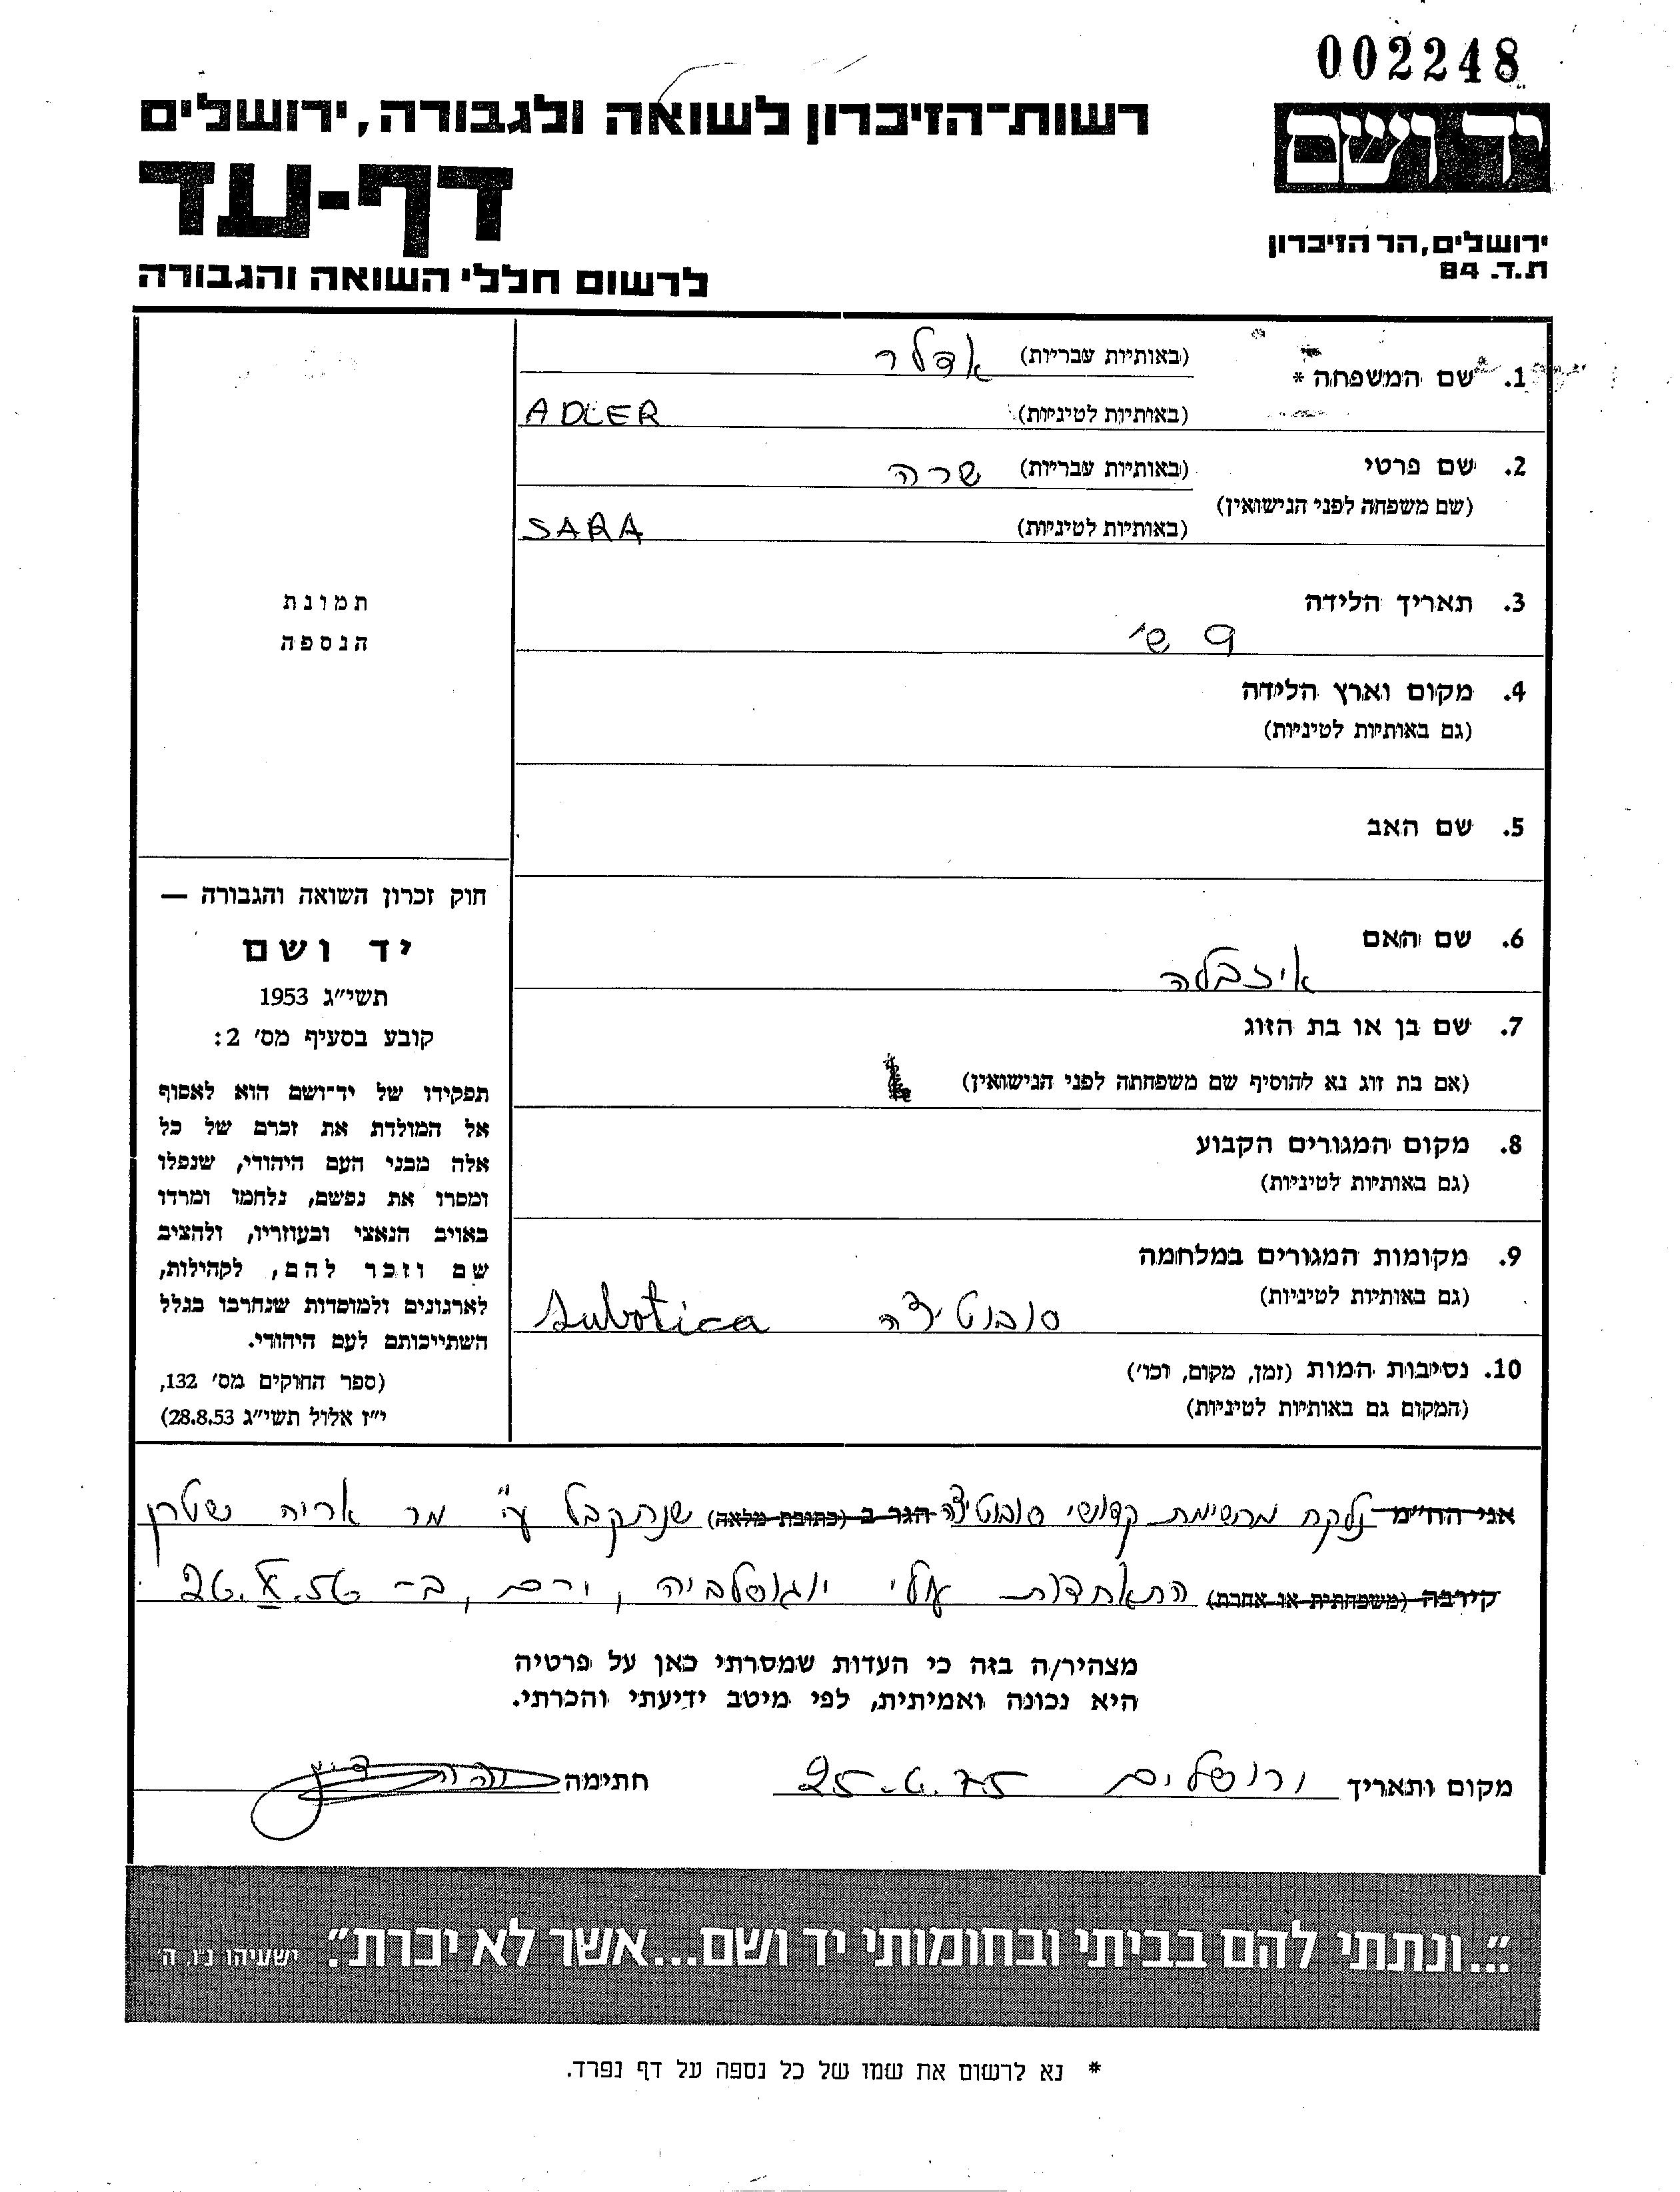 002248
יד ושם
רשות־הזיכרון לשואה ולגבורה, ירושלים
דף-עד
ירושלים, הר הזיכרון
ת.ד. 84
לרשום חללי השואה והגבורה
1. שם המשפחה * (באותיות עבריות) אדלר
(באותיות לטיניות) ADLER
2. שם פרטי (באותיות עבריות) שרה
(שם משפחה לפני הנישואין)
(באותיות לטיניות) SARA
3. תאריך הלידה
9 ש'
4. מקום וארץ הלידה
(גם באותיות לטיניות)
5. שם האב
6. שם האם
איזבלה
7. שם בן או בת הזוג
(אם בת זוג נא להוסיף שם משפחתה לפני הנישואין)
8. מקום המגורים הקבוע
(גם באותיות לטיניות)
9. מקומות המגורים במלחמה
(גם באותיות לטיניות)
סובוטיצה Subotica
10. נסיבות המות (זמן, מקום, וכו')
(המקום גם באותיות לטיניות)
תמונת
הנספה
חוק זכרון השואה והגבורה —
יד ושם
תשי״ג 1953
קובע בסעיף מס' 2:
תפקידו של יד־ושם הוא לאסוף
אל המולדת את זכרם של כל
אלה מבני העם היהודי, שנפלו
ומסרו את נפשם, נלחמו ומרדו
באויב הנאצי ובעוזריו, ולהציב
שם וזכר להם, לקהילות,
לארגונים ולמוסדות שנחרבו בגלל
השתייכותם לעם היהודי.
(ספר החוקים מס' 132,
י״ז אלול תשי״ג 28.8.53)
אני הח״מ נלקח מרשימת קדושי סובוטיצה הגר ב (כתובת מלאה) שנתקבל ע"י מר אריה שטרן
קירבה (משפחתית או אחרת) התאחדות עולי יוגוסלביה, ירם, ב- 26.X.56
מצהיר/ה בזה כי העדות שמסרתי כאן על פרטיה
היא נכונה ואמיתית, לפי מיטב ידיעתי והכרתי.
מקום ותאריך ירושלים 25.6.75 חתימה
״...ונתתי להם בביתי ובחומותי יד ושם...אשר לא יכרת״. ישעיהו נ״ו, ה'
* נא לרשום את שמו של כל נספה על דף נפרד.